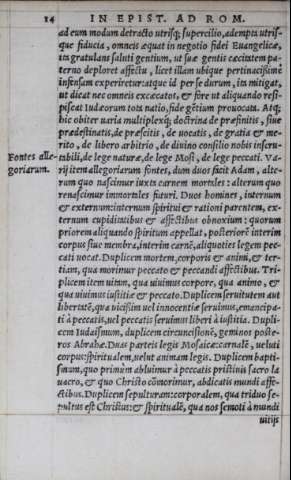 14 IN EPIST. AD ROM.
ad eum modum detracto utrisq; supercilio, adempta utris-
que fiducia, omneis æquat in negotio fidei Euangelicæ,
ita gratulans saluti gentium, ut suæ gentis cæcitatem pa-
terno deploret affectu, licet illam ubique pertinacissime
infensam experiretur: atque id per se durum, ita mitigat,
ut dicat nec omneis excæcatos, & fore ut aliquando resi-
piscat Iudæorum tota natio, fide gẽtium prouocata. Atq;
hic obiter uaria multiplexq; doctrina de præfinitis, siue
prædestinatis, de præscitis, de uocatis, de gratia & me-
rito, de libero arbitrio, de diuino consilio nobis inscru-
tabili, de lege naturæ, de lege Mosi, de lege peccati. Va-
Fontes alle-
goriarum.
rij item allegoriarum fontes, dum duos facit Adam, alte-
rum quo nascimur iuxta carnem mortales: alterum quo
renascimur immortales futuri. Duos homines, internum
& externum: internum spiritui & rationi parentem, ex-
ternum cupiditatibus & affectibus obnoxium: quorum
priorem aliquando spiritum appellat, posteriorẽ interim
corpus siue membra, interim carnẽ, aliquoties legem pec-
cati uocat. Duplicem mortem, corporis & animi, & ter-
tiam, qua morimur peccato & peccandi affectibus. Tri-
plicem item uitam, qua uiuimus corpore, qua animo, &
qua uiuimus iustitiæ & peccato. Duplicem seruitutem aut
libertatẽ, qua uicissim uel innocentiæ seruimus, emancipa-
ti à peccatis, uel peccatis seruimus liberi à iustitia. Dupli-
cem Iudaismum, duplicem circuncisionẽ, geminos poste-
ros Abrahæ. Duas parteis legis Mosaicæ: carnalẽ, ueluti
corpus: spiritualem, uelut animam legis. Duplicem bapti-
smum, quo primùm abluimur à peccatis pristinis sacro la
uacro, & quo Christo cõmorimur, abdicatis mundi affe-
ctibus. Duplicem sepulturam: corporalem, qua triduo se-
pultus est Christus: & spiritualẽ, qua nos semoti à mundi
uitijs